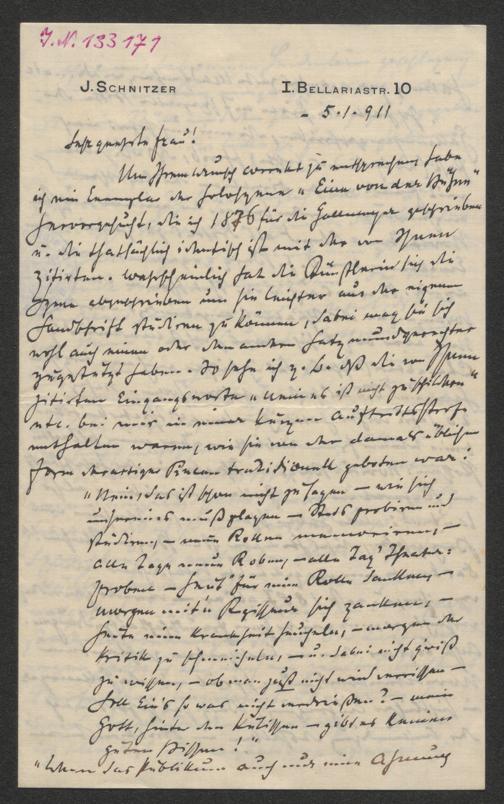 J.N. 133171
J. SCHNITZER I. BELLARIASTR. 10
- 5.1.911
Sehr geehrte Frau!
Um Ihrem Wunsch correkt zu entsprechen, habe
ich ein Exemplar der Soloszene "Eine von der Bühne"
hervorgesucht, die ich 1876 für die Gallmeyer geschrieben
u. die thatsächlich identisch ist mit der von Ihnen
zitirten. Wahrscheinlich hat die Künstlerin sich die
Szene abgeschrieben um sie leichter aus der eigenen
Handschrift studiren zu können, dabei mag sie sich
wohl auch einen oder den andern Satz mundgerechter
zugestutzt haben. So sehe ich z. B. daß die von Ihnen
zitirten Eingangsworte "Nein es ist nicht zu schildern"
etc. bei mir in einer kurzen Auftrittsstrofe
enthalten waren, wie sie von der damals üblichen
Form derartiger Piecen traditionell geboten war:
"Nein, das ist schon nicht zu sagen – wie sich
unsereines muß plagen – Stets probiren und
studiren, – neue Rollen memoriren, –
alle Tage neue Roben, – alle Tag' Theater-
proben – heut' für eine Rolle danken, –
morgen mit'n Regisseur sich zanken, –
heute eine Krankheit heucheln, – morgen der
Kritik zu schmeicheln, – u. dabei nicht gewiß
zu wissen, – ob man just nicht wird verrissen –
Soll Ein's so was nicht verdrießen? – mein
Gott, hinter den Kulissen – gibt es keinen
guten Bissen!"
"Wenn das Publikum auch nur eine Ahnung